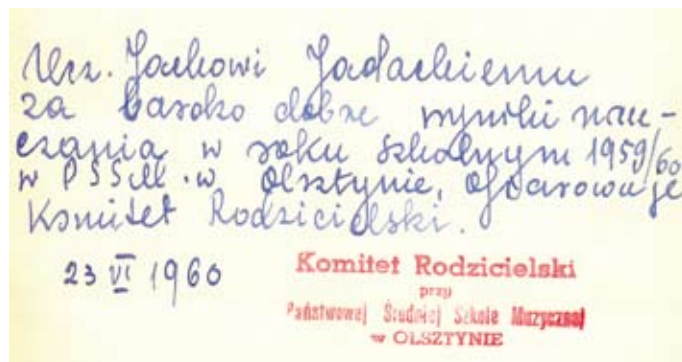 Ucz. Jackowi Jadackiemu
za bardzo dobre wyniki nau-
czania w roku szkolnym 1959/60
w PSSM. w Olsztynie, ofiarowuje
Komitet Rodzicielski.
23 VI 1960
Komitet Rodzicielski
przy
Państwowej Średniej Szkole Muzycznej
w OLSZTYNIE